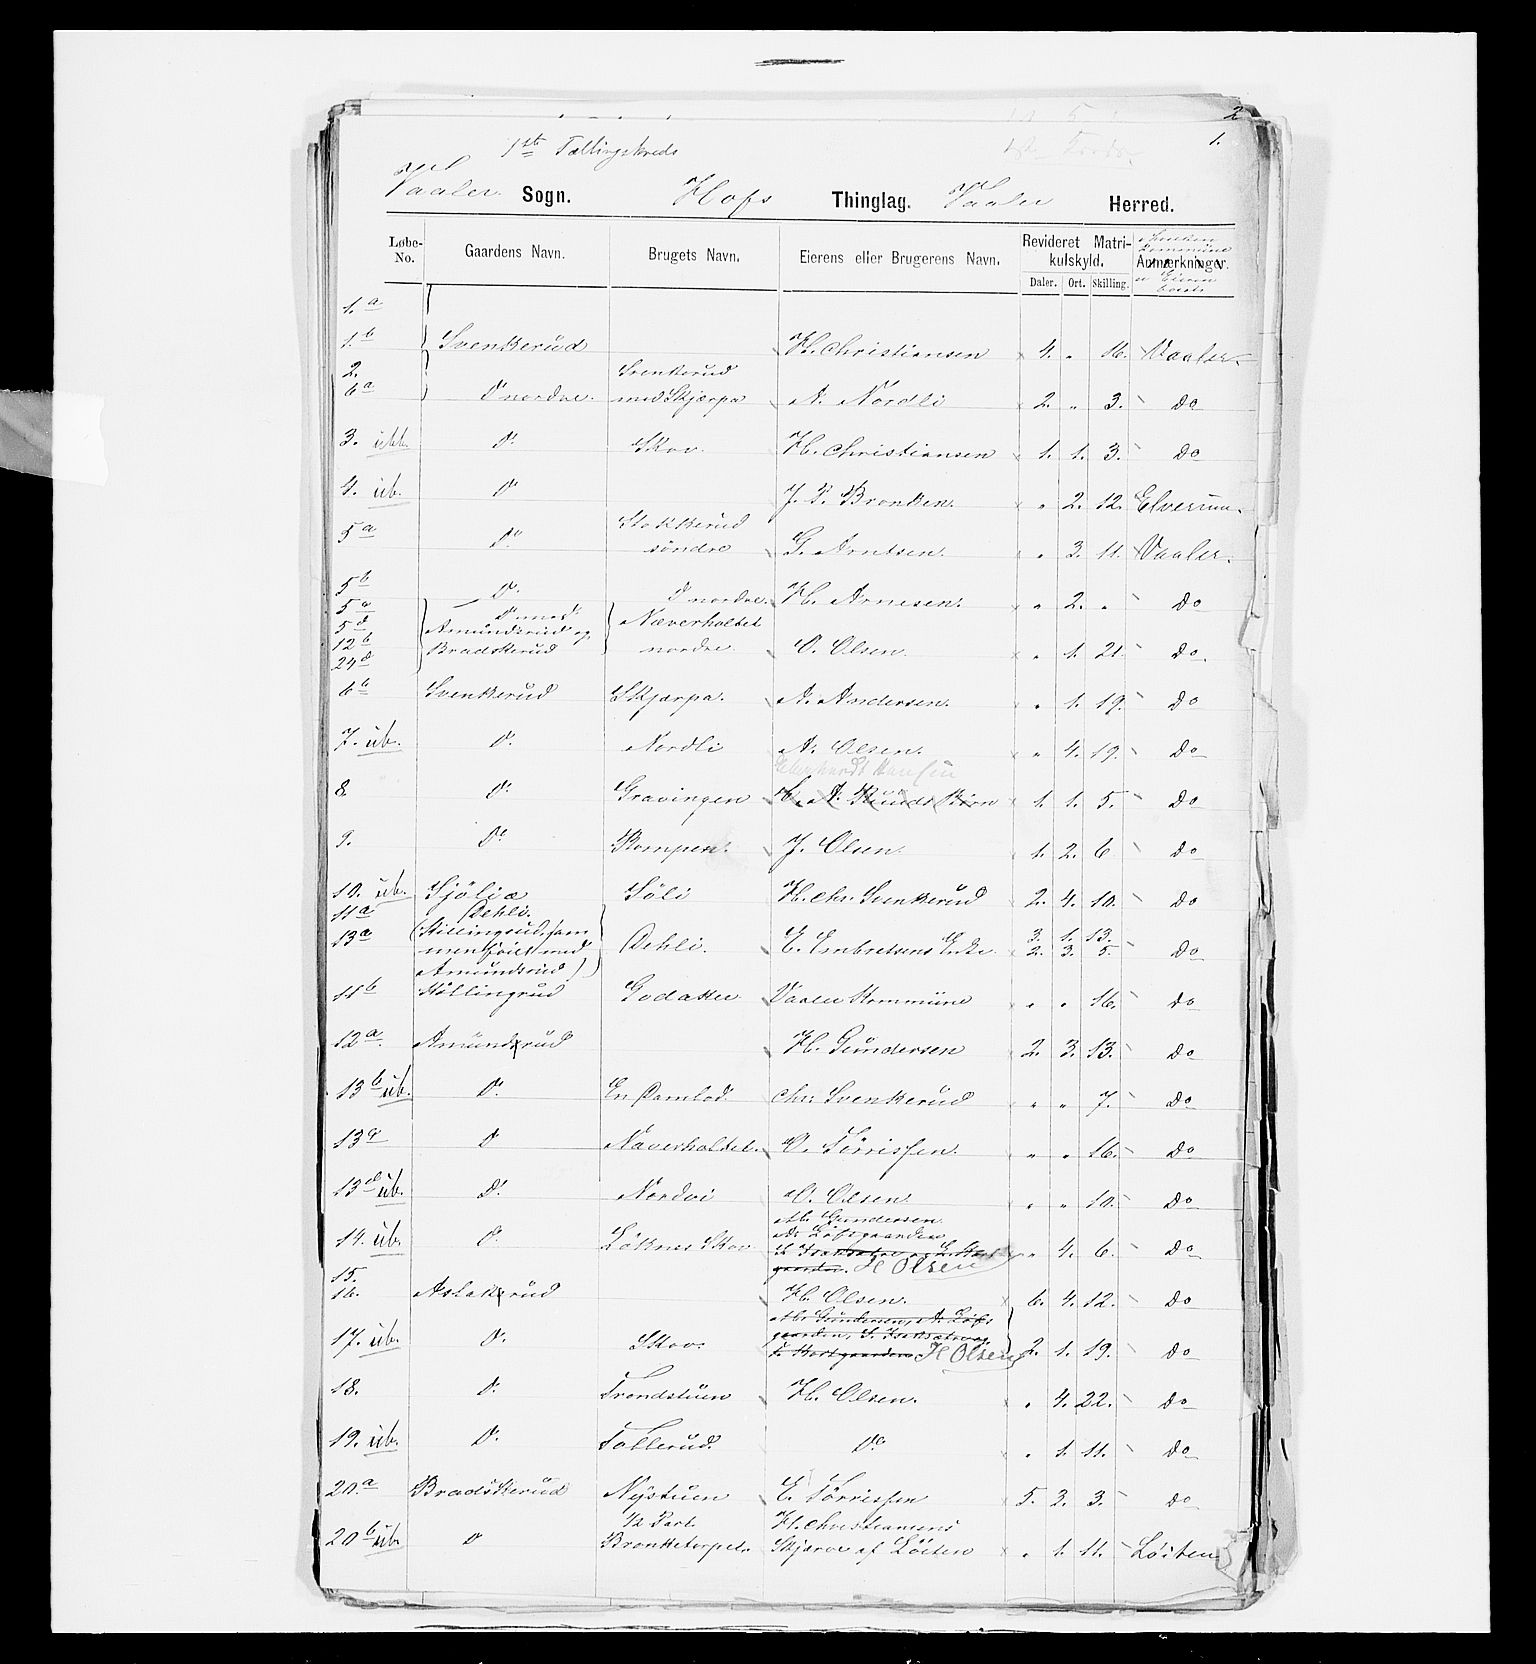 2
1.
1ste Tællingskreds
Vaaler Sogn. Hofs Thinglag. Vaaler Herred.
Løbe-No. Gaardens Navn. Brugets Navn. Eierens eller Brugerens Navn. Revideret Matrikulskyld. Anmærkninger.
Daler. Ort. Skilling.
1.a
1.b Svenkerud H. Christiansen 4. " 16. Vaaler
2. Svenkerud
6a do nordre. med Skjærpa A. Nordli 2. " 3. do
3. ub. do Skov. H. Christiansen 1. 1. 3. do
4. ub. do J. P. Bronken. " 2. 12. Elverum.
5a do Stokkerud søndre G. Arntsen. " 3. 11. Vaaler.
5b do do nordre. H. Arnesen. " 2. " do
5a do med Næverholtet
5d Amundsrud og
12b Bradskerud nordre. O. Olsen. " 1. 21. do
24d
6b Svenkerud Skjærpa. A. Andersen. " 1. 19. do
7. ub. do Nordli A. Olsen. " 4. 19. do
Hansen
8. do Gravingen 1. 1. 5. do
9. do Rompen. J. Olsen. 1. 2. 6 do
10. ub. Sjøliæ Søli H. Chr. Svenkerud 2. 4. 10. do
11a Dehli. 3. 1. 13.
13a (Stillingsrud sammenføiet med Amundsrud) Dehli. E. Embretsens Enke 2. 3. 5. do
11b Stillingrud Godaker Vaaler Kommune " " 16. do
12a. Amundsrud H. Gundersen 2. 3. 13. do
13b ub. do En Damlod Chr. Svenkerud " " 7. do
13c do Naverholtet. O. Tørrissen. " " 16. do
13d ub. do Nordvi O. Olsen. " " 10. do
M. Gundersen
14. ub. do Løknes Skov H Olsen " 4. 6. do
15.
16. Aslakrud H. Olsen. 6. 4. 12. do
17. ub. do Skov. H Olsen 2. 1. 19. do
18. do Trondstuen H. Olsen. " 4. 22. do
19. ub. do Tollerud do " 1. 11. do
20.a Bradskerud Nystuen E. Tørrissen 5. 3. 3. do
1/2 Part. H. Christiansens
20b ub. do Bronketorpet. Skjæroe af Løiten " 1. 11. Løiten